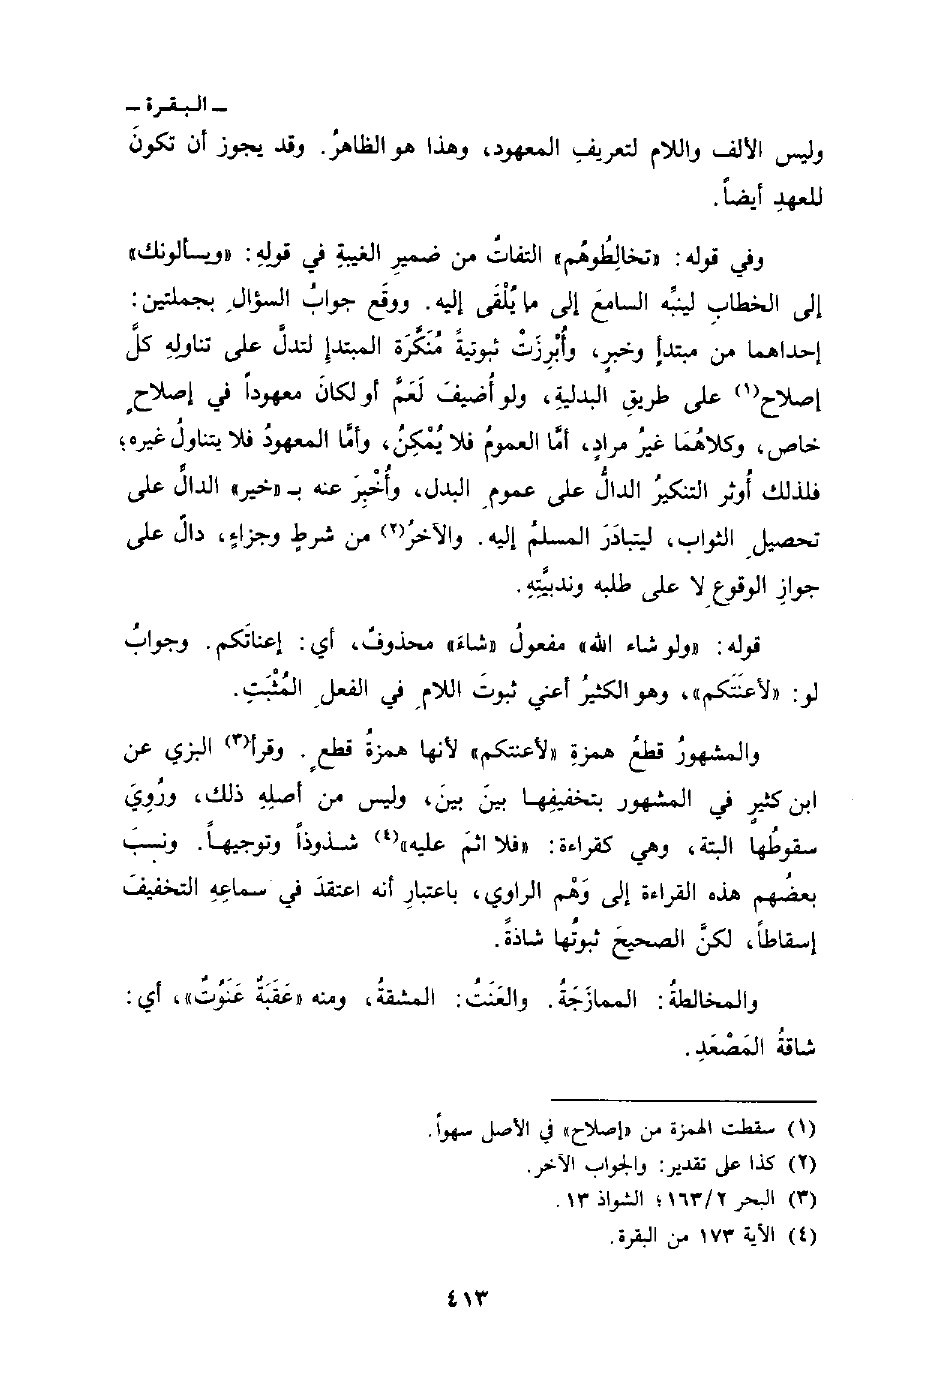 ـ البقرة ـ
وليس الألف واللام لتعريفِ المعهود، وهذا هو الظاهرُ. وقد يجوز أن تكونَ
للعهدِ أيضاً.
وفي قوله: «تخالِطُوهُم» التفاتٌ من ضميرِ الغَيْبةِ في قولِهِ: «ويسألونك»
إلى الخطابِ لينبِّه السامعَ إلى ما يُلْقَى إليه. ووقَع جوابُ السؤالِ بجملتين:
إحداهما من مبتدأٍ وخبرٍ، وأُبْرِزَتْ ثبوتيةً مُنَكَّرَة المبتدإِ لتدلَّ على تناولِهِ كلَّ
إصلاح(١) على طريقِ البدليةِ، ولو أُضيفَ لَعَمَّ أو لكانَ معهوداً في إصلاحٍ
خاص، وكلاهُمَا غيرُ مرادٍ، أمَّا العمومُ فلا يُمْكِنُ، وأمَّا المعهودُ فلا يتناولُ غيره؛
فلذلك أُوثر التنكيرُ الدالُّ على عمومِ البدل، وأُخْبِرَ عنه بـ «خير» الدالِّ على
تحصيلِ الثواب، ليتبادَرَ المسلمُ إليه. والآخرُ(٢) من شرطٍ وجزاءٍ، دالّ على
جوازِ الوقوعِ لا على طلبه وندبيَّتِهِ.
قوله: «ولو شاء الله» مفعولُ «شاءَ» محذوفٌ، أي: إعناتَكم. وجوابُ
لو: «لأعنَتَكم»، وهو الكثيرُ أعني ثبوتَ اللامِ في الفعلِ المُثْبَتِ.
والمشهورُ قطعُ همزةِ «لأعنتكم» لأنها همزةُ قطعٍ. وقرأ(٣) البزي عن
ابن كثيرٍ في المشهور بتخفيفِها بينَ بينَ، وليس من أصلِهِ ذلك، ورُوِيَ
سقوطُها البتة، وهي كقراءة: «فلا اثمَ عليه»(٤) شذوذاً وتوجيهاً. ونسبَ
بعضُهم هذه القراءة إلى وَهْمِ الراوي، باعتبارِ أنه اعتقدَ في سماعِهِ التخفيفَ
إسقاطاً، لكنَّ الصحيحَ ثبوتُها شاذةً.
والمخالطةُ: الممازَجَةُ. والعَنَتُ: المشقةُ، ومنه «عَقَبَةٌ عَنُوْتٌ»، أي:
شاقةُ المَصْعَدِ.
(١) سقطت الهمزة من «إصلاح» في الأصل سهواً.
(٢) كذا على تقدير: والجواب الآخر.
(٣) البحر ٢/١٦٣؛ الشواذ ١٣.
(٤) الآية ١٧٣ من البقرة.
٤١٣